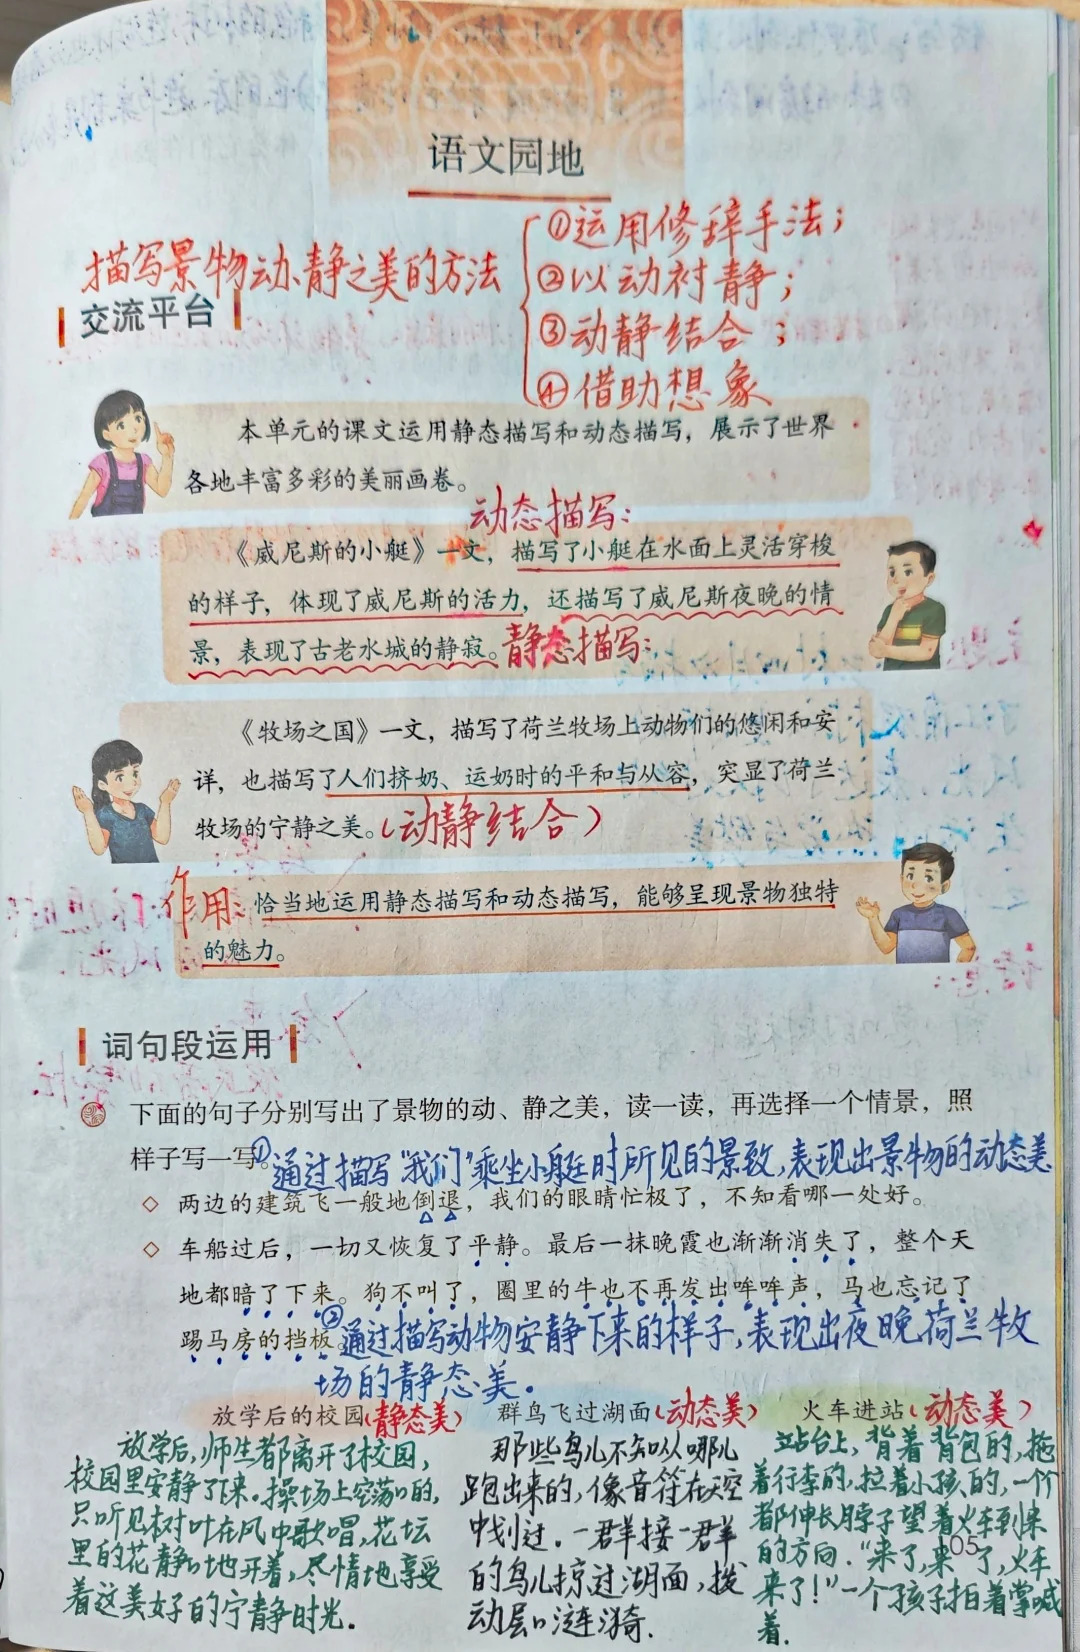 语文园地
描写景物动、静之美的方法
①运用修辞手法；
②以动衬静；
③动静结合；
④借助想象
交流平台
本单元的课文运用静态描写和动态描写，展示了世界
各地丰富多彩的美丽画卷。
动态描写：
《威尼斯的小艇》一文，描写了小艇在水面上灵活穿梭
的样子，体现了威尼斯的活力，还描写了威尼斯夜晚的情
景，表现了古老水城的静寂。静态描写：
《牧场之国》一文，描写了荷兰牧场上动物们的悠闲和安
详，也描写了人们挤奶、运奶时的平和与从容，突显了荷兰
牧场的宁静之美。（动静结合）
作用：恰当地运用静态描写和动态描写，能够呈现景物独特
的魅力。
词句段运用
下面的句子分别写出了景物的动、静之美，读一读，再选择一个情景，照
样子写一写。①通过描写“我们”乘坐小艇时所见的景致，表现出景物的动态美
◇ 两边的建筑飞一般地倒退，我们的眼睛忙极了，不知看哪一处好。
◇ 车船过后，一切又恢复了平静。最后一抹晚霞也渐渐消失了，整个天
地都暗了下来。狗不叫了，圈里的牛也不再发出哞哞声，马也忘记了
踢马房的挡板。②通过描写动物安静下来的样子，表现出夜晚荷兰牧
场的静态美。
放学后的校园（静态美）
放学后，师生都离开了校园，
校园里安静了下来。操场上空荡荡的，
只听见树叶在风中歌唱，花坛
里的花静静地开着，尽情地享受
着这美好的宁静时光。
群鸟飞过湖面（动态美）
那些鸟儿不知从哪儿
跑出来的，像音符在天空
中划过。一群接一群
的鸟儿掠过湖面，拨
动层层涟漪。
火车进站（动态美）
站台上，背着背包的，拖
着行李的，拉着小孩的，一个个
都伸长脖子望着火车到来
的方向。“来了，来了，火车
来了！”一个孩子拍着掌喊
着。
105